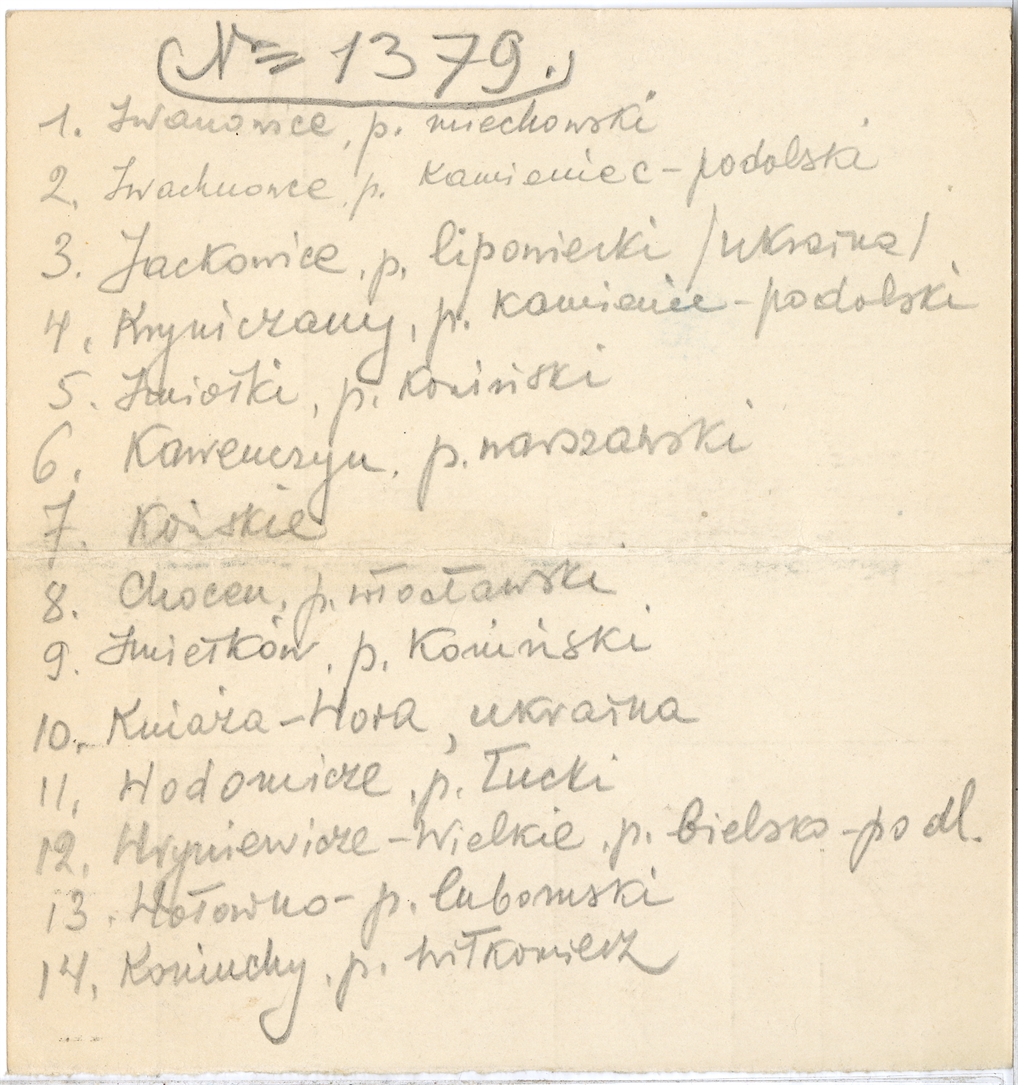 № 1379.
1. Iwanowice, p. miechowski
2. Iwachnowce, p. Kamieniec-podolski
3. Jackowice, p. lipowiecki /ukraina/
4. Kryniczany, p. Kamieniec-podolski
5. Imiołki, p. Koniński
6. Kawenczyn, p. warszawski
7. Końskie
8. Choceń, p. włocławski
9. Imiełków, p. Koniński
10. Kniaża-Hora, ukraina
11. Hodomicze, p. Łucki
12. Hryniewicze-Wielkie, p. bielsko-podl.
13. Hołowno- p. lubomski
14. Koniuchy, p. Wiłkomierz